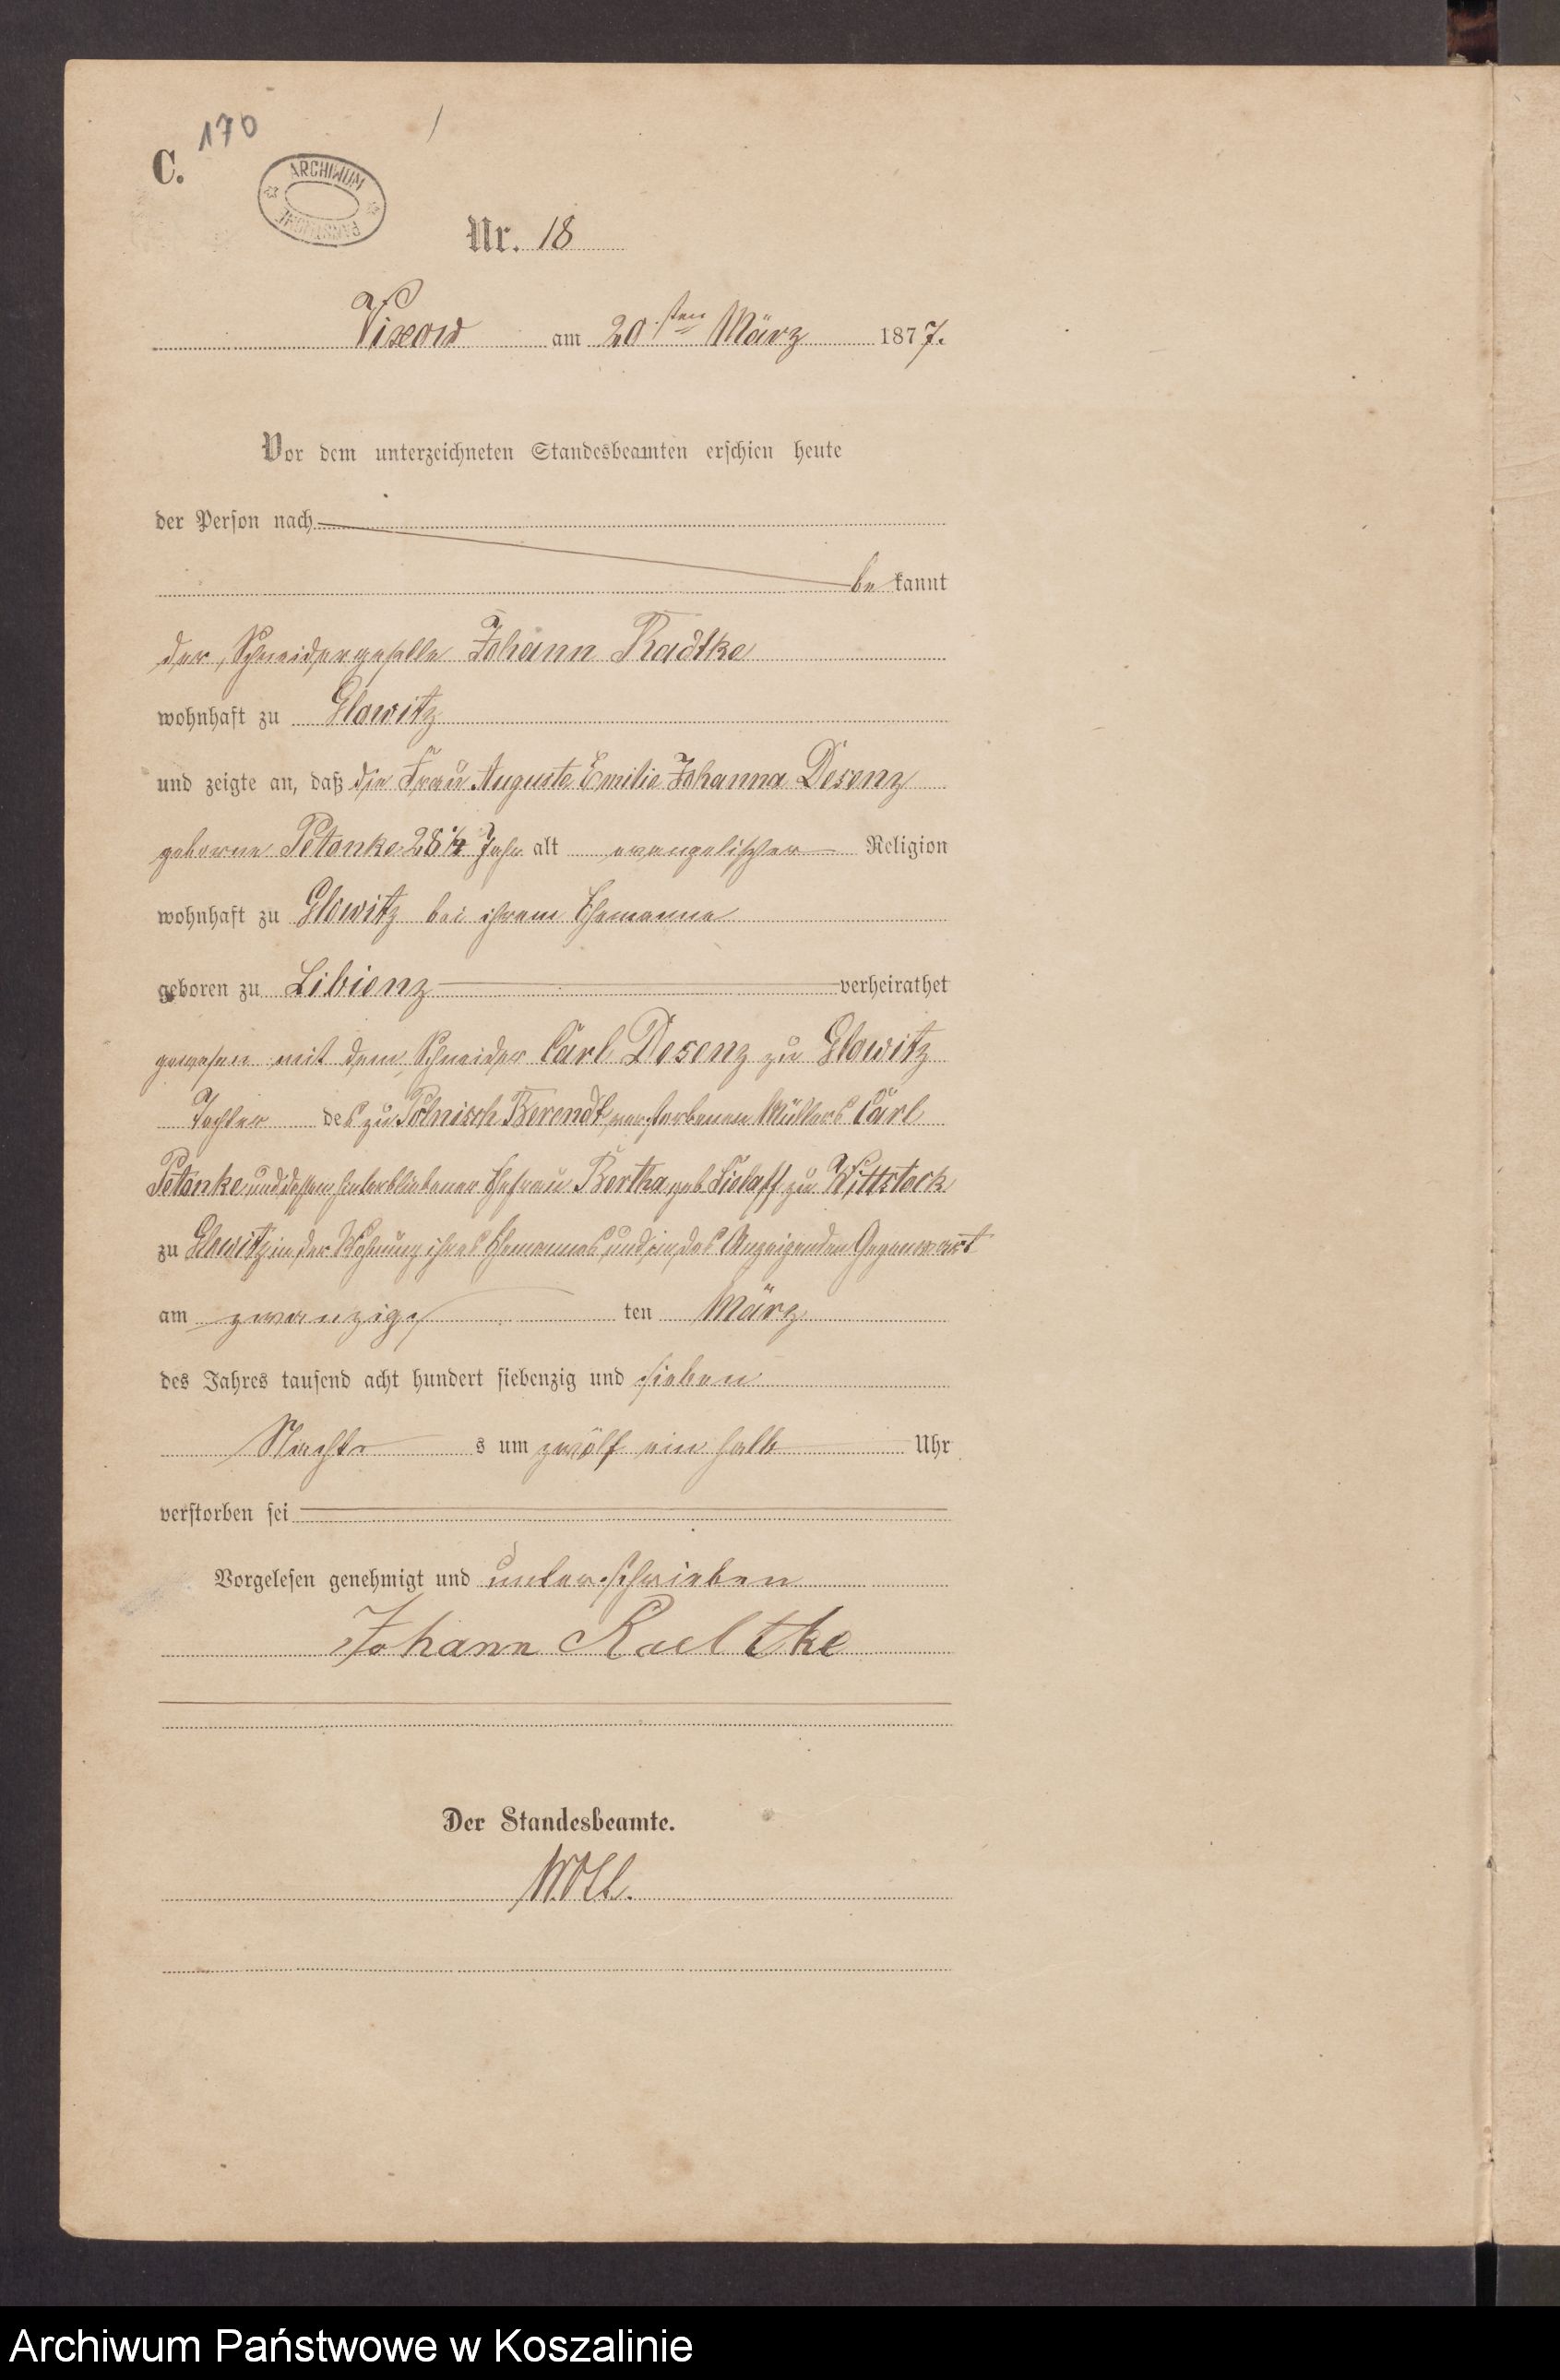 170
C.
ARCHIWUM
Nr. 18
Vixow am 20sten März 1877.
Vor dem unterzeichneten Standesbeamten erschien heute
der Person nach
be kannt
der Schneidergeselle Johann Radtke
wohnhaft zu Glowitz
und zeigte an, daß die Frau Auguste Emilie Johanna Desenz
geborne Petanke 28 1/4 Jahr alt evangelischer Religion
wohnhaft zu Glowitz bei ihrem Ehemanne
geboren zu Libienz verheirathet
gewesen mit dem Schneider Carl Desenz zu Glowitz
Tochter des zu Polnisch Berendt verstorbenen Müllers Carl
Petanke und dessen hinterbliebener Ehefrau Bertha geb Lielaff zu Wittstock
zu Glowitz in der Wohnung ihres Ehemannes und in des Anzeigenden Gegenwart
am zwanzigs ten März
des Jahres tausend acht hundert siebenzig und sieben
Nacht s um zwölf ein halb Uhr
verstorben sei
Vorgelesen genehmigt und unterschrieben
Johann Raeltke
Der Standesbeamte.
Woll.
Archiwum Państwowe w Koszalinie